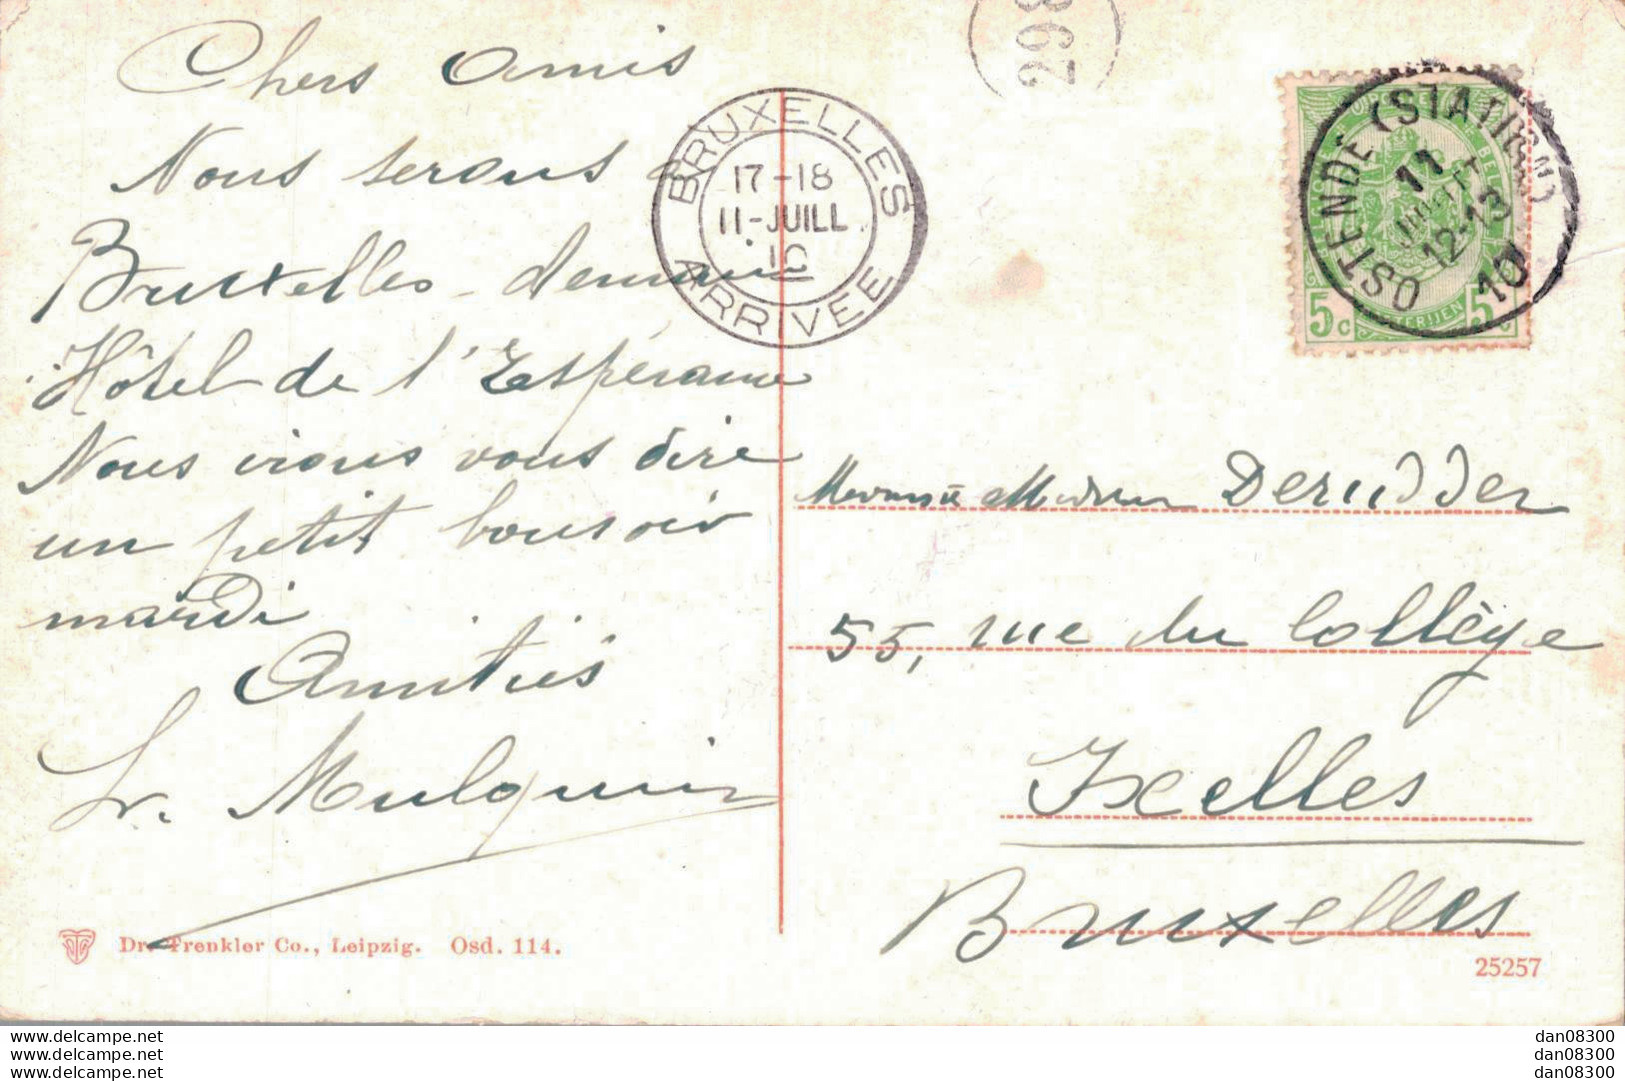 Chers Amis
Nous serons à
Bruxelles demain
Hôtel de l'Espérance
Nous irons vous dire
un petit bonsoir
mardi
Amitiés
Mulquin
298
BRUXELLES
17-18
11-JUILL
10
ARRIVEE
OSTENDE (STATION)
11
JUILLET
12-13
10
5c 5c
Deridder
55, rue du Collège
Ixelles
Bruxelles
Dr. Trenkler Co., Leipzig. Osd. 114.
25257
www.delcampe.net dan08300
www.delcampe.net dan08300
www.delcampe.net dan08300